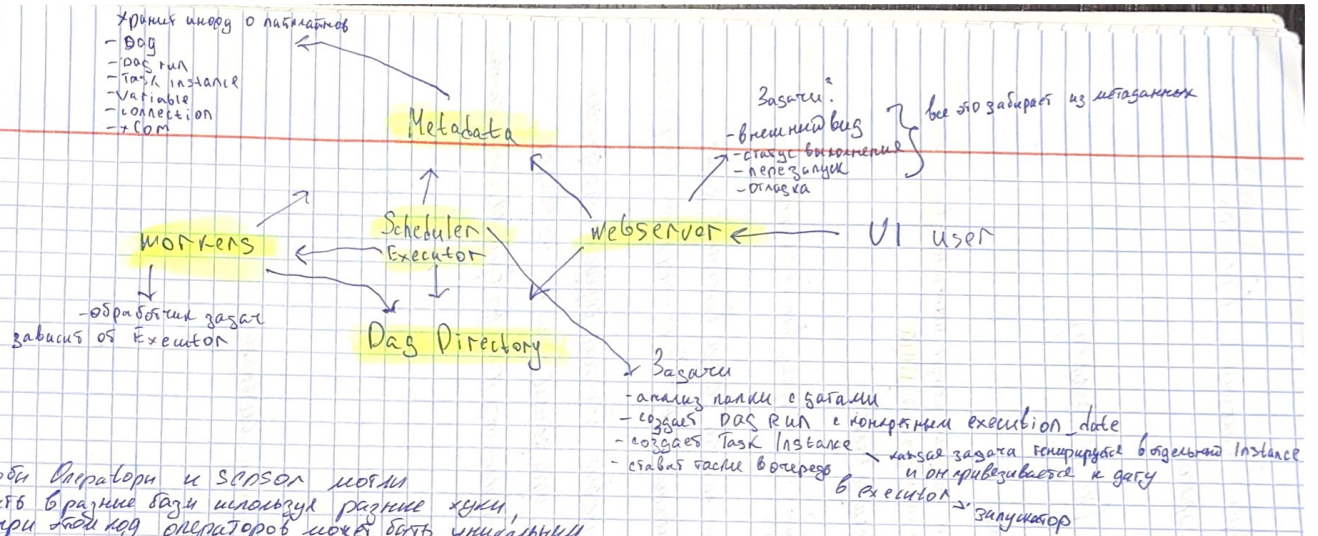 Хранит инфо о
- Dag
- Dag run
- Task instance
- Variable
- connection
- xCom
Metadata
Задачи:
- внешний вид
- статус выполнения
- перезапуск
- отладка
все это забирает из метаданных
workers
Scheduler
Executor
webserver
UI user
- обработчик задач
зависит от Executor
Dag Directory
Задачи
- анализ папки с дагами
- создает Dag Run с конкретным execution_date
- создает Task Instance
каждая задача генерируется в отдельный Instance
и он привезивается к дагу
- ставит таски в очередь
в executor
→ запускатор
оби Оператори и
ть в разние бази используя разние хуки,
при этом код операторов может бить уникальним